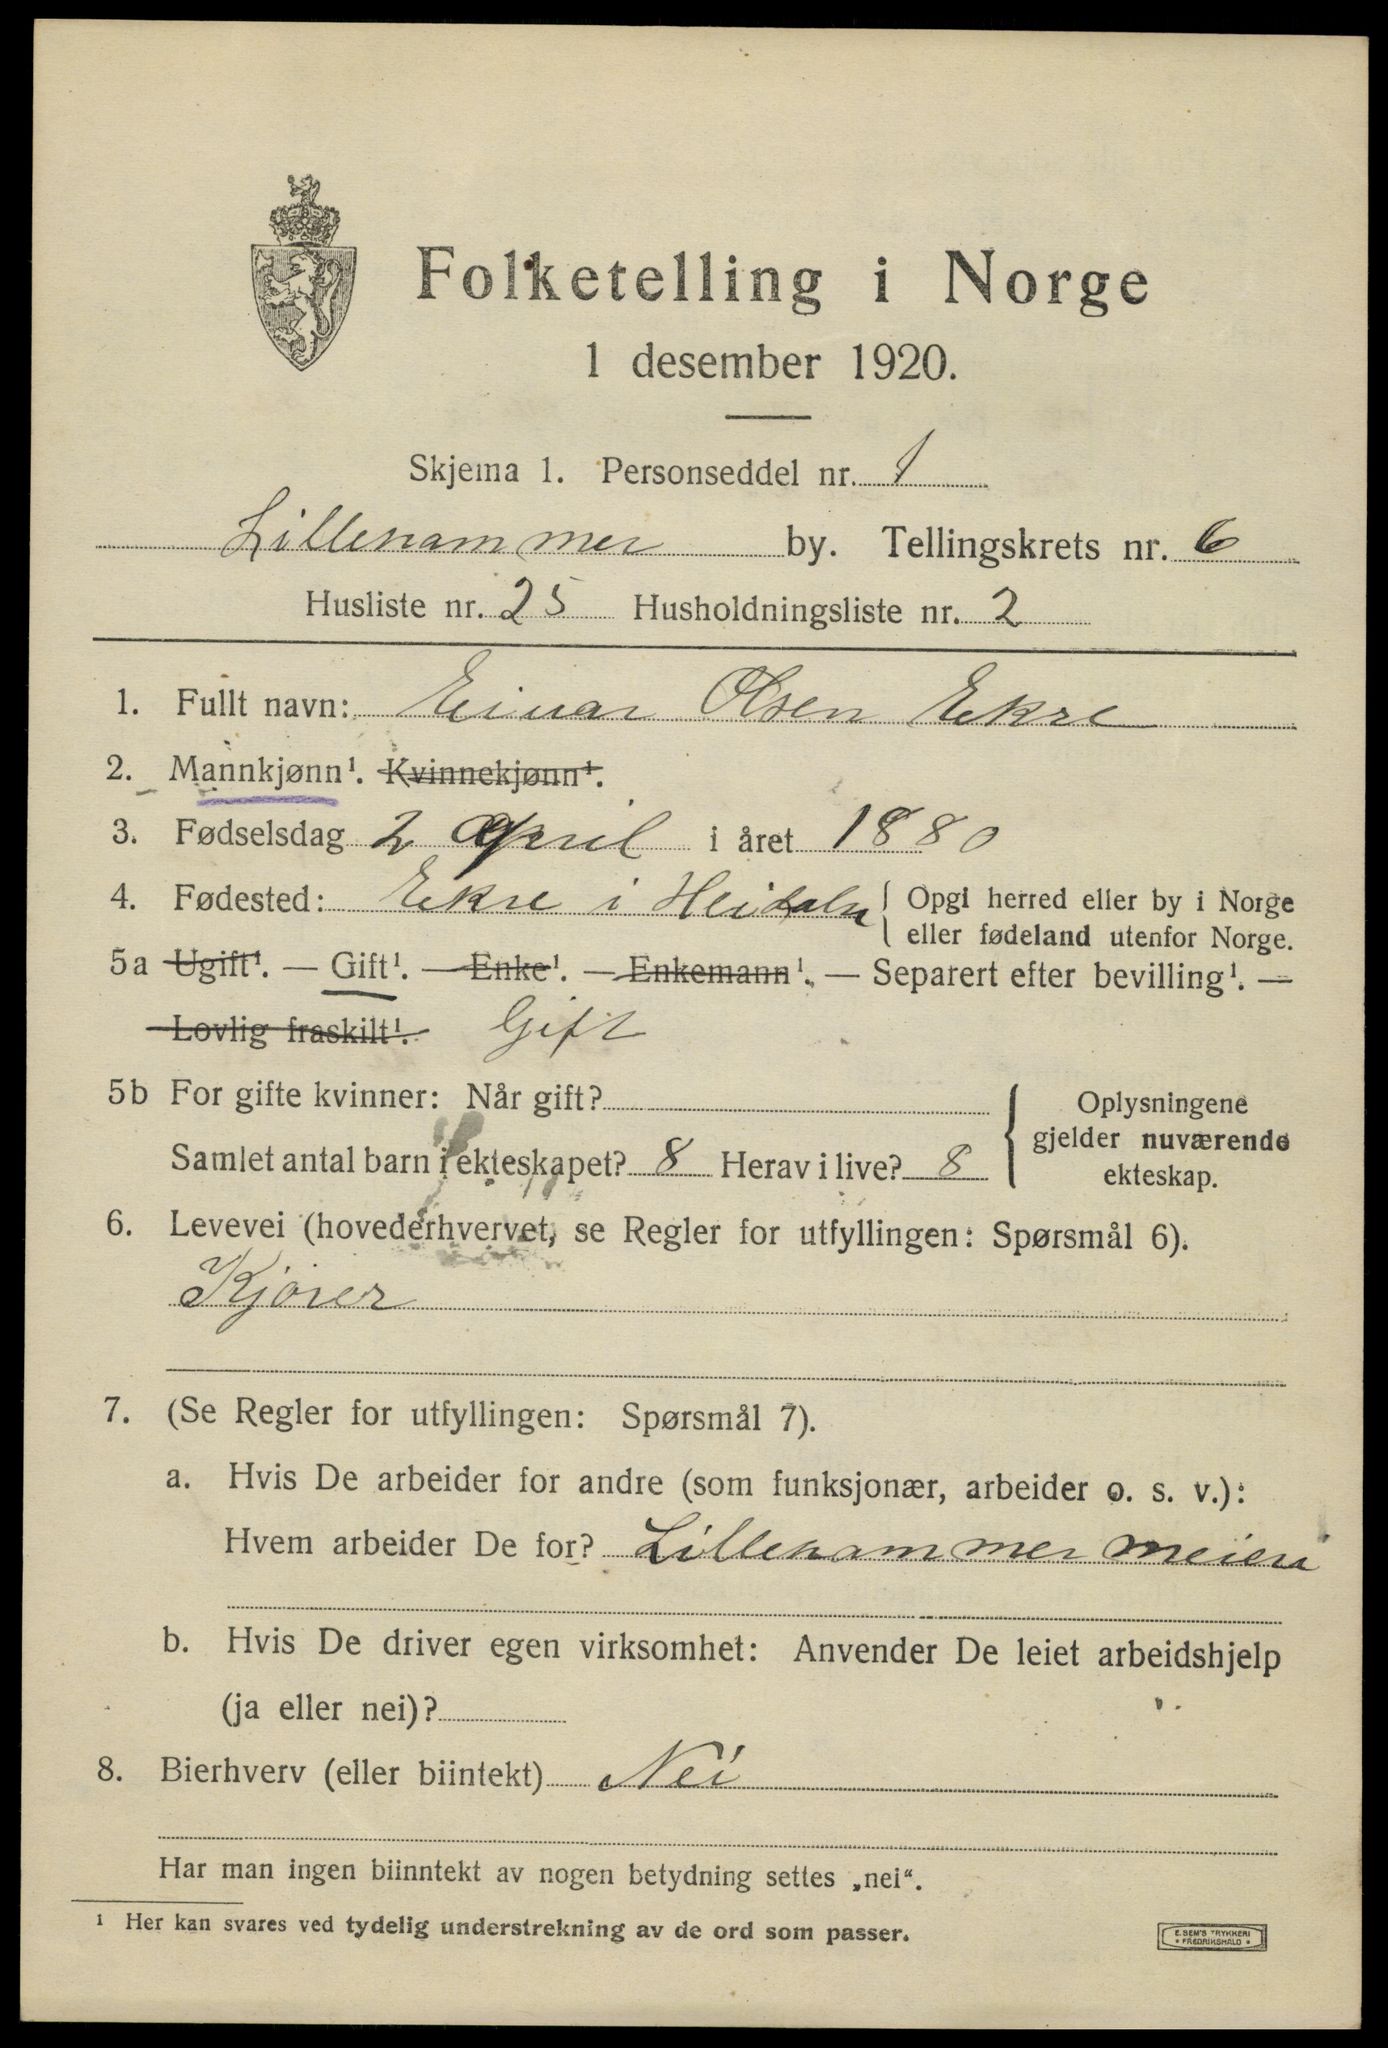 Folketelling i Norge
1 desember 1920.
Skjema 1. Personseddel nr. 1
Lillehammer by. Tellingskrets nr. 6
Husliste nr. 25 Husholdningsliste nr. 2
1. Fullt navn: Einar Olsen Ekre
2. Mannkjønn¹. Kvinnekjønn¹.
3. Fødselsdag 2 april i året 1880
4. Fødested: Ekre i Heidalen { Opgi herred eller by i Norge
eller fødeland utenfor Norge.
5a Ugift¹. — Gift¹. — Enke¹. — Enkemann¹. — Separert efter bevilling¹. —
Lovlig fraskilt¹. Gift
5b For gifte kvinner: Når gift?
Samlet antal barn i ekteskapet? 8 Herav i live? 8
Oplysningene
gjelder nuværende
ekteskap.
6. Levevei (hovederhvervet, se Regler for utfyllingen: Spørsmål 6).
Kjører
7. (Se Regler for utfyllingen: Spørsmål 7).
a. Hvis De arbeider for andre (som funksjonær, arbeider o. s. v.):
Hvem arbeider De for? Lillehammer meieri
b. Hvis De driver egen virksomhet: Anvender De leiet arbeidshjelp
(ja eller nei)?
8. Bierhverv (eller biintekt) Nei
Har man ingen biinntekt av nogen betydning settes „nei“.
¹ Her kan svares ved tydelig understrekning av de ord som passer.
E. SEM'S TRYKKERI
FREDRIKSHALD